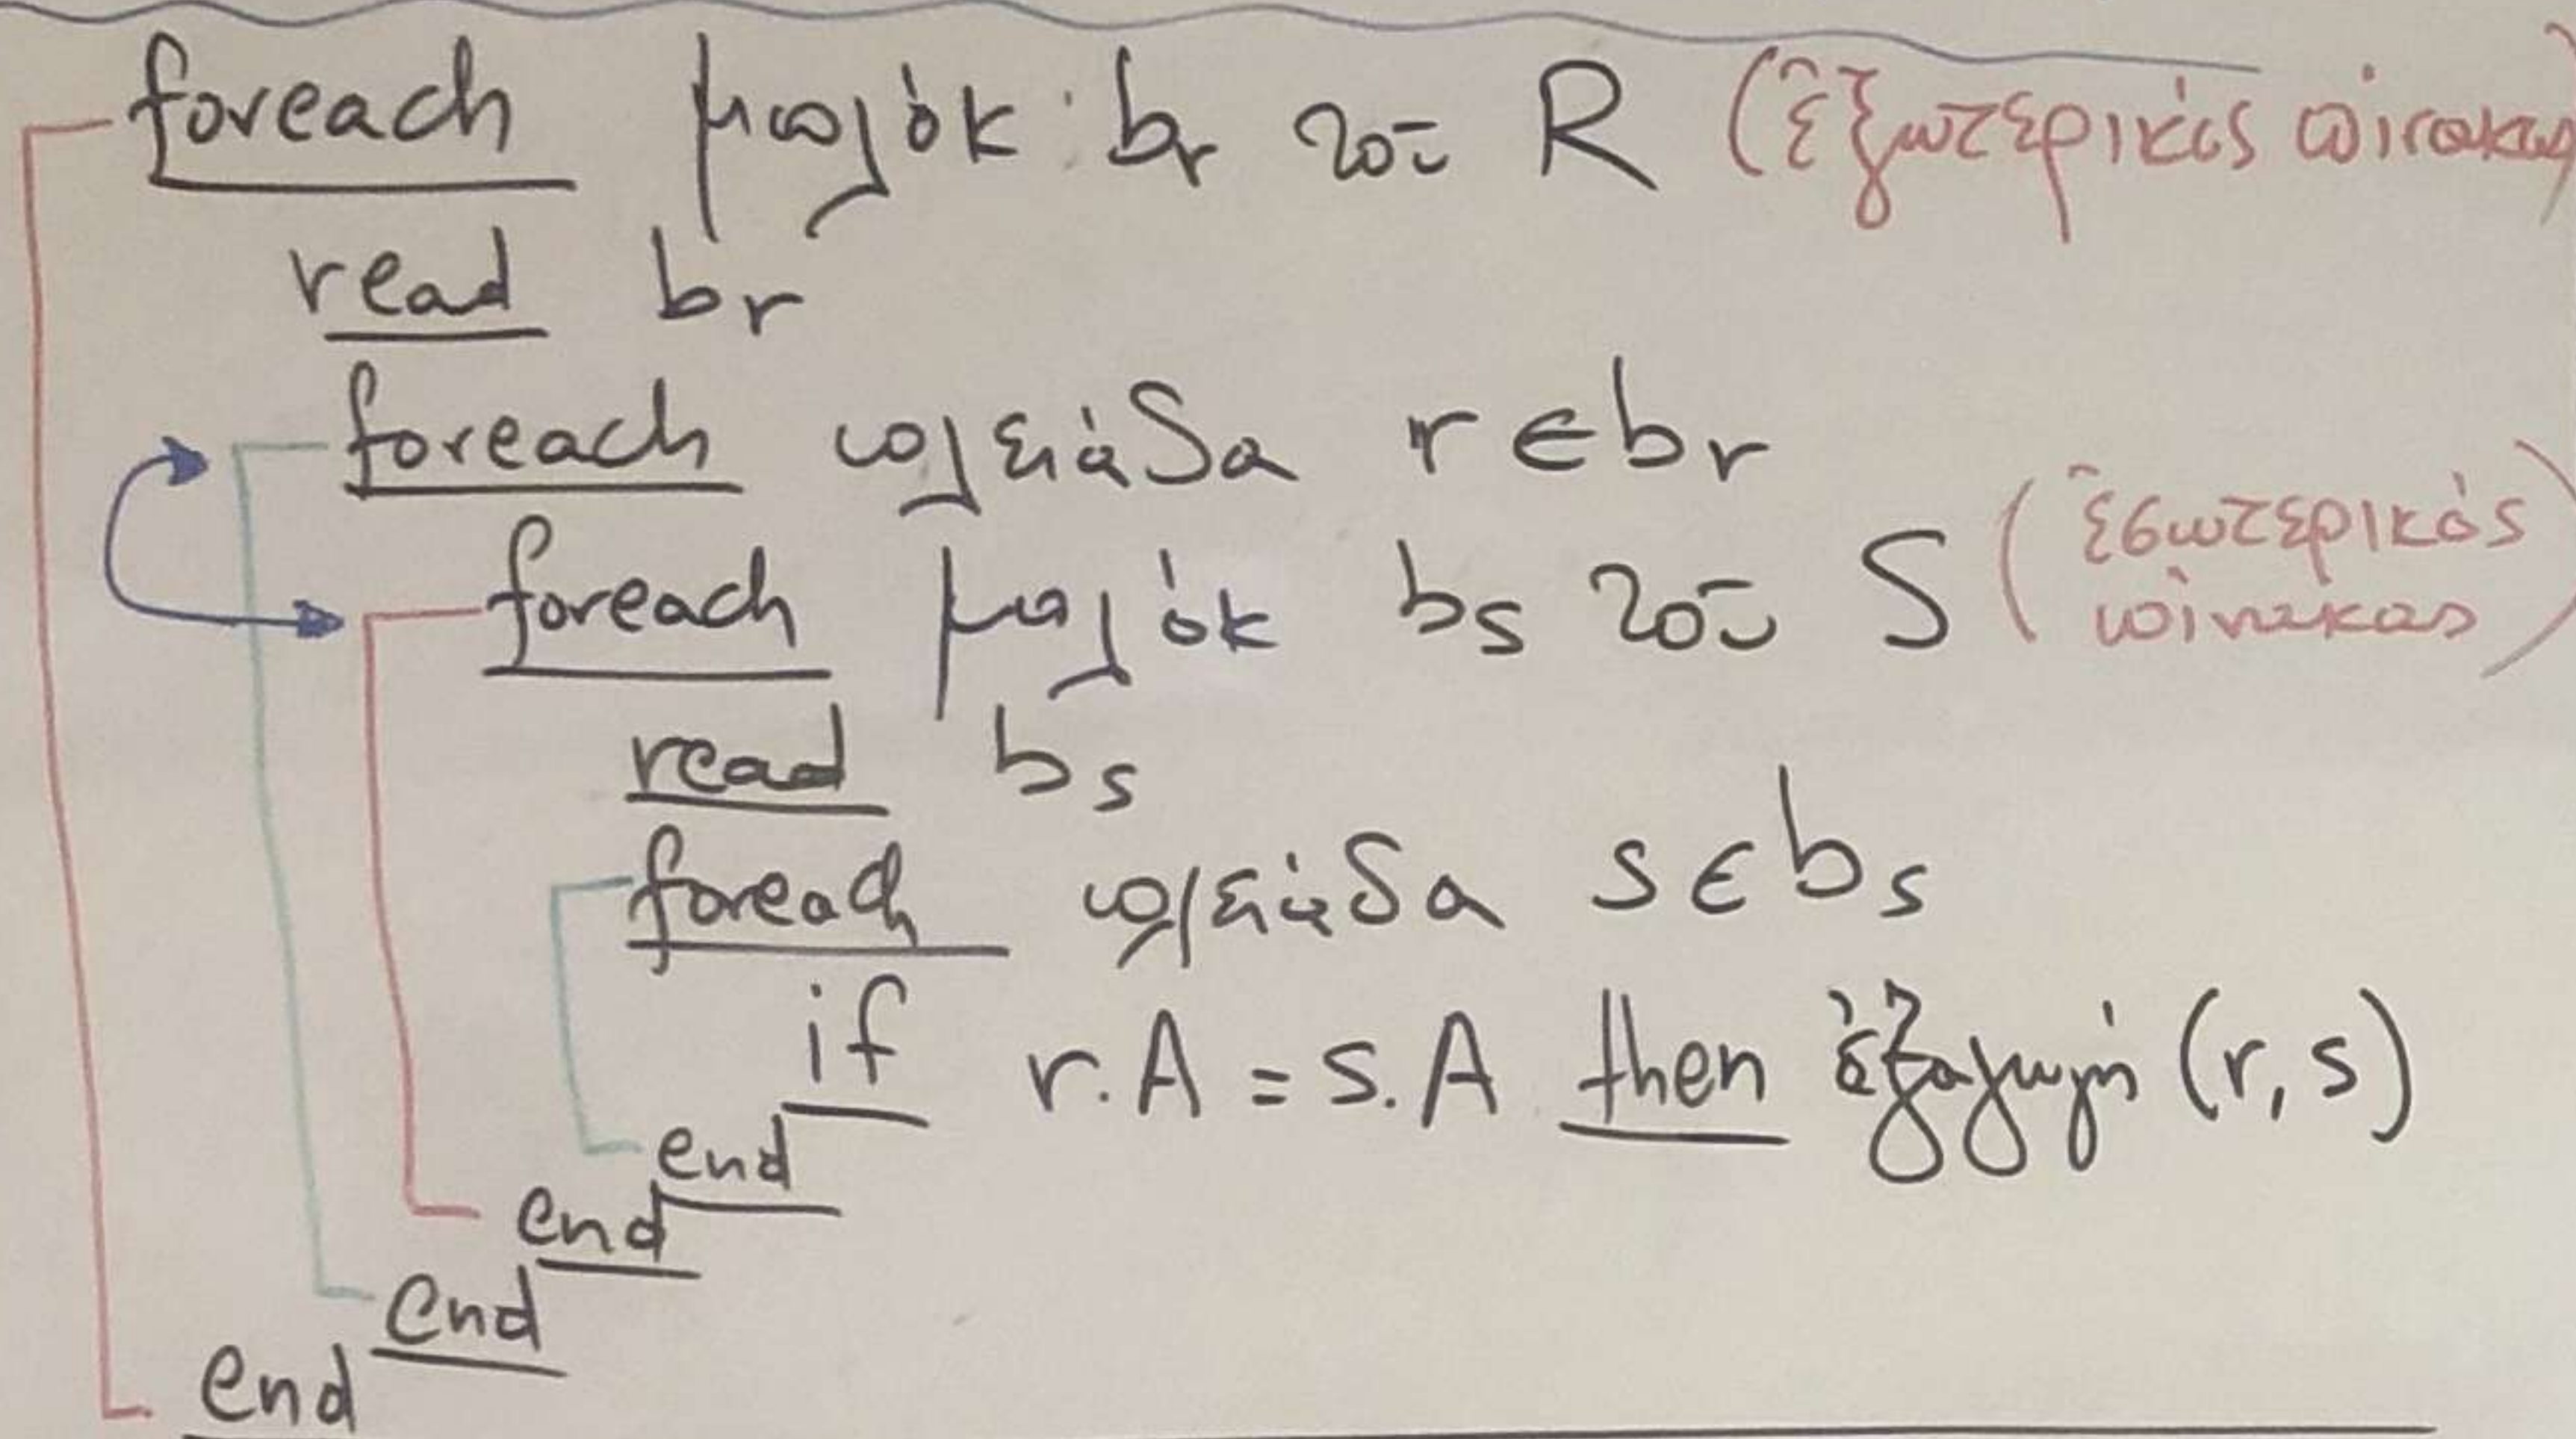 foreach μπλόκ br τοῦ R (ἐξωτερικός πίνακας)
read br
foreach πλειάδα r ∈ br
foreach μπλόκ bs τοῦ S (ἐσωτερικός πίνακας)
read bs
foreach πλειάδα s ∈ bs
if r.A = s.A then ἐξαγωγή (r, s)
end
end
end
end